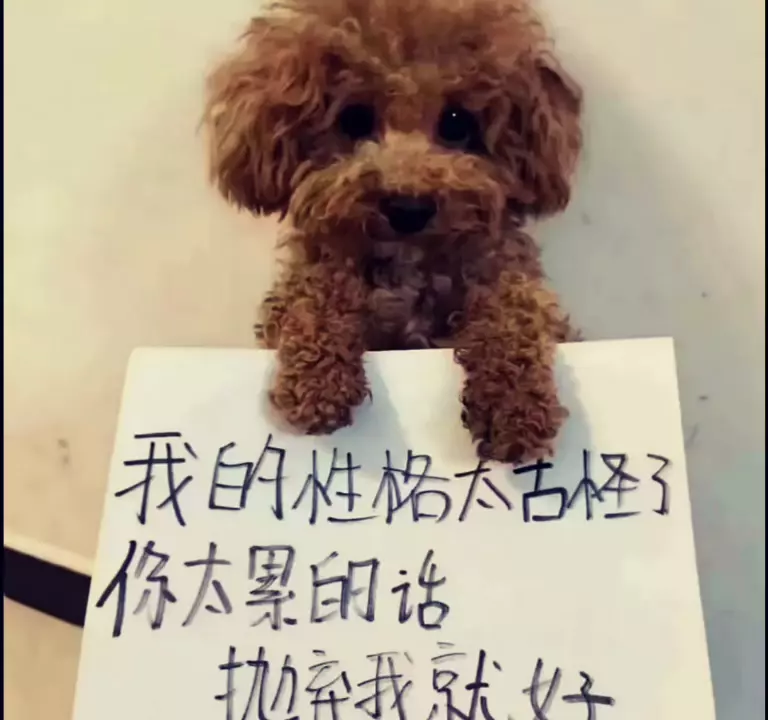 我的性格太古怪了
你太累的话
抛弃我就好